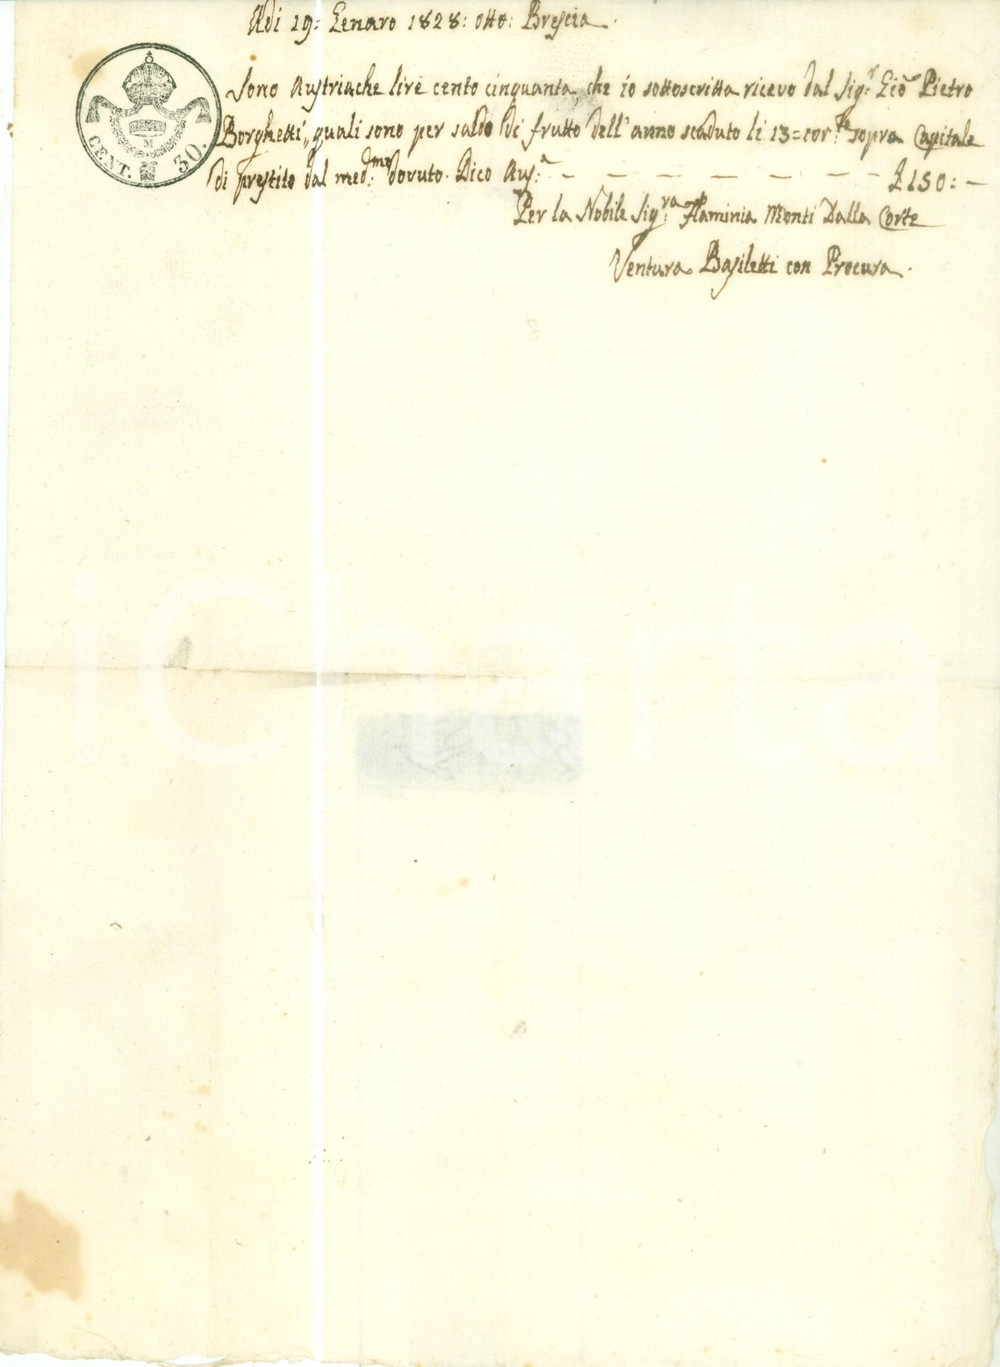 Adi 19: Genaro 1828: otto: Brescia.
Sono Austriache lire cento cinquanta, che io sottoscritta ricevo dal Sig.r Gio Pietro
Borghetti, quali sono per saldo di frutto dell'anno scaduto li 13=cor.te sopra Capitale
di prestito dal med.mo dovuto. Dico Aus.e — — — — — — — £ 150: —
Per la Nobile Sig.ra Flaminia Monti Dalla Corte
Ventura Basiletti con Procura.
CENT. 30.
iCharta